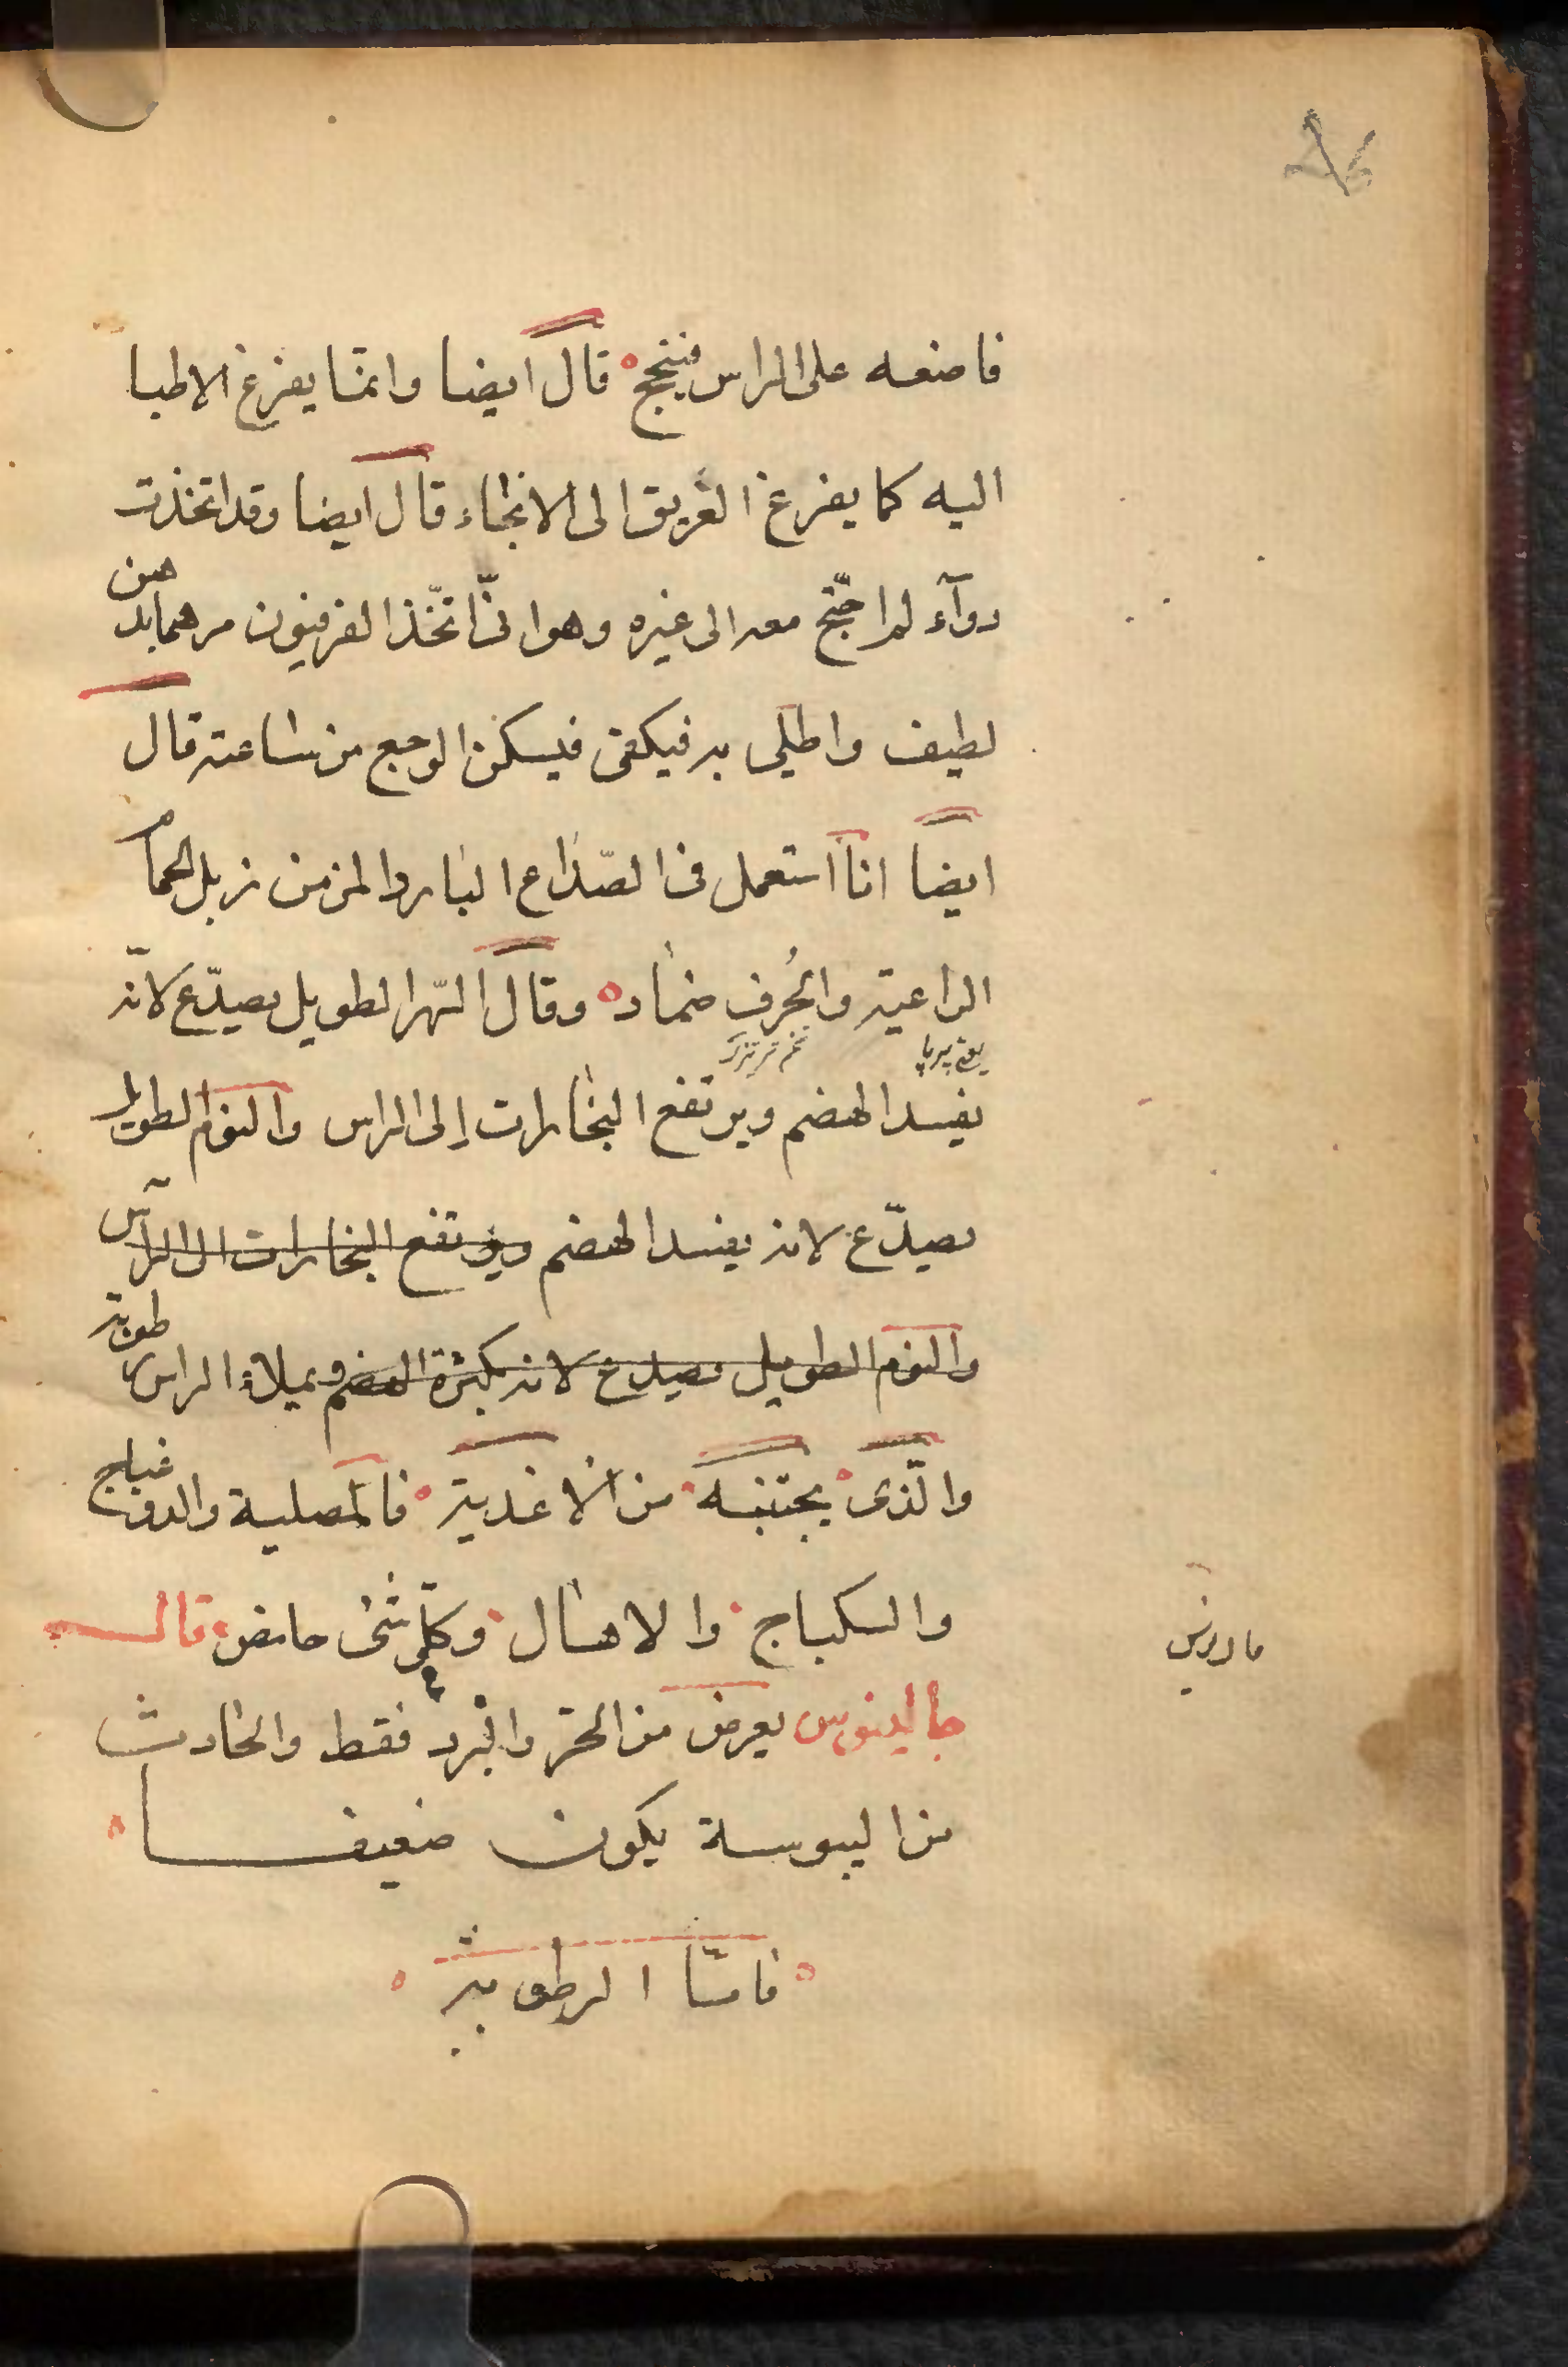 فاضعه على الراس فينجح قال ايضا وانما يفزع الاطبا
اليه كما يفزع الغريق الى الانجاء قال ايضا وقد اتخذت
دوآء لم احتج معه الى غيره وهو انى اتخذ الفرفيون مرهما بدهن
لطيف واطلى به فيكفى فيسكن الوجع من ساعته قال
ايضا انا استعمل فى الصداع البارد المزمن زبل الحمام
الراعية والحرف ضماد وقال السهر الطويل يصدع لانه
تخم
يفسد الهضم ويرتفع البخارات إلى الراس والنوم الطويل
يصدع لانه يفسد الهضم ويرتفع البخارات الى الرأس
والنوم الطويل يصدع لانه يكثرة الهضم ويملاء الراس رطوبة
والذى يجتنبه من الاغذية فالمصلية والدوغباج
والسكباج والاهال وكل شئ حامض قال
جالينوس يعرض من الحر والبرد فقط والحادث
من اليبوسة يكون ضعيفا
فامتا الرطوبة